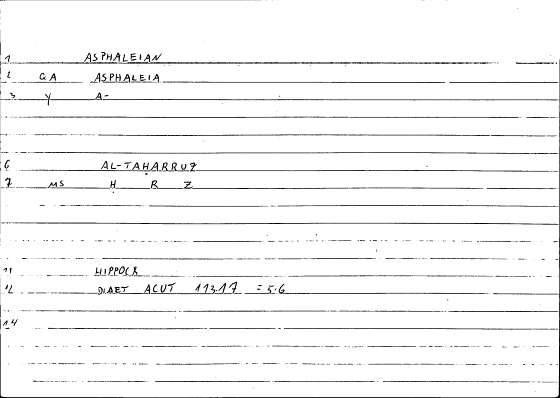 1 ASPHALEIAN
2 GA ASPHALEIA
3 Y A-
6 AL-TAḤARRUZ
7 MS Ḥ R Z
11 HIPPOCR
12 DIAET ACUT 113.17 = 5.6
14